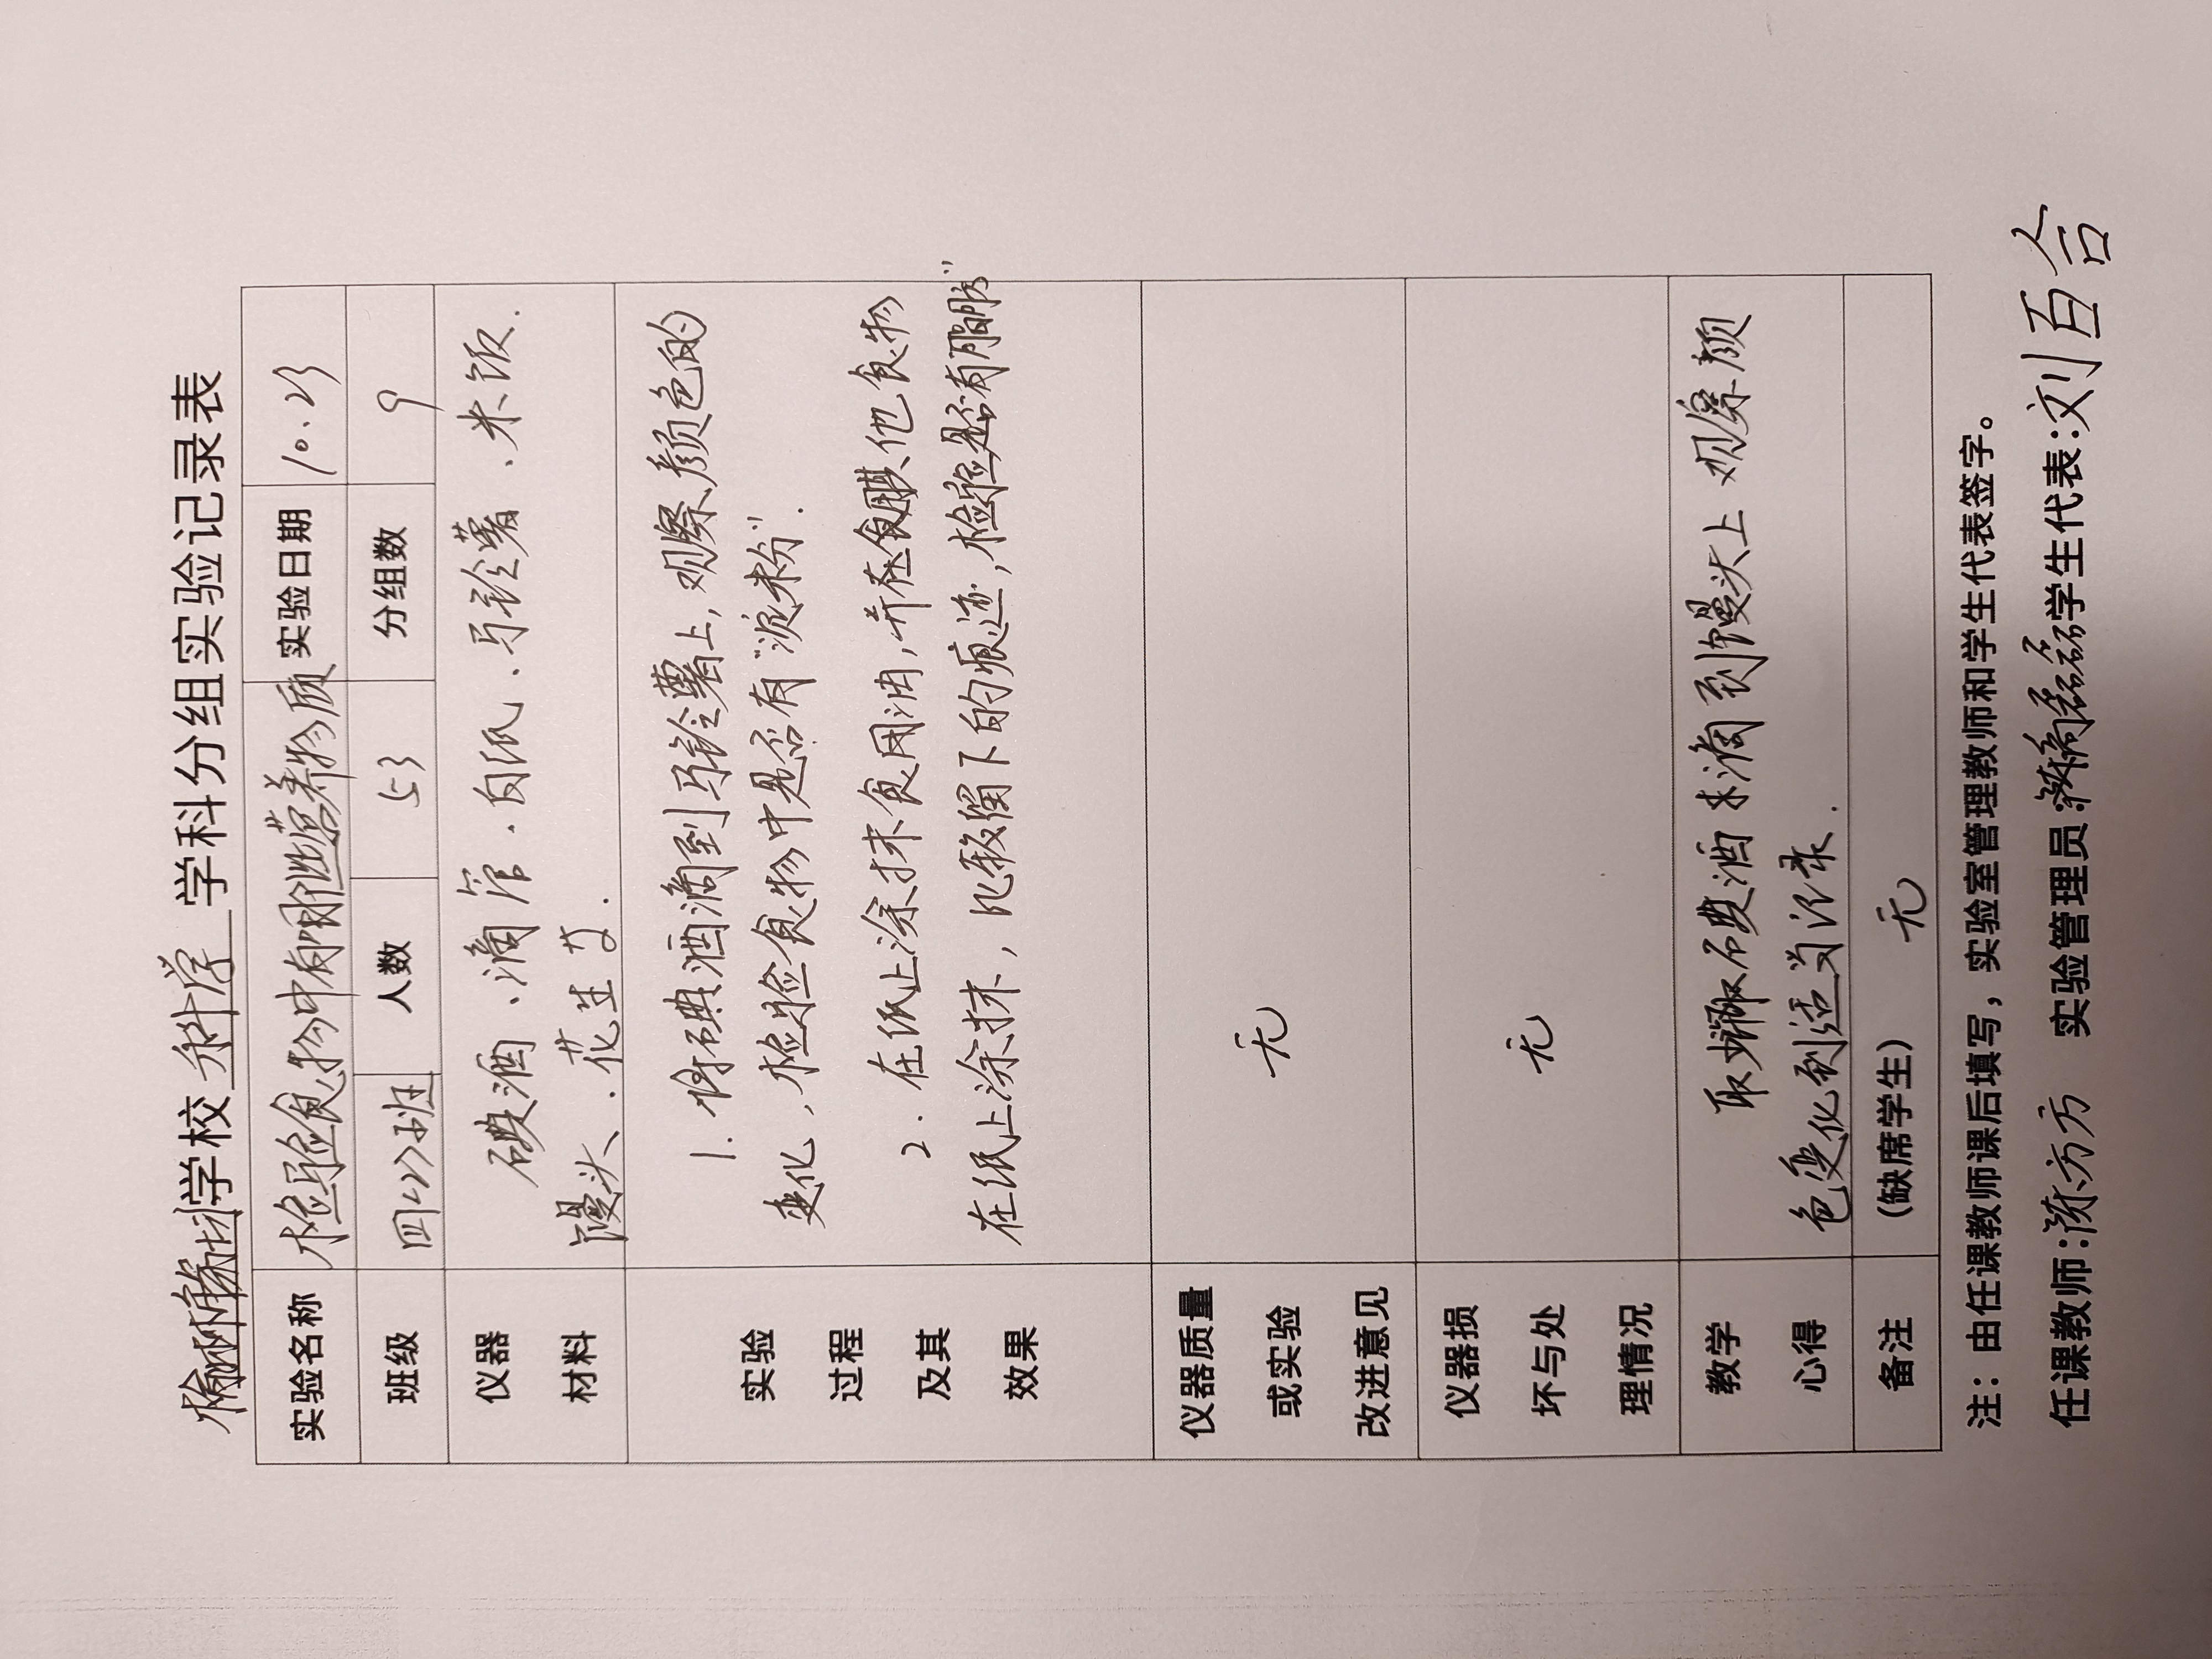 学校 科学 学科分组实验记录表
实验名称 检验食物中有哪些营养物质 实验日期 10.23
班级 四<2>班 人数 53 分组数 9
仪器材料 碘酒、滴管、白纸、马铃薯、米饭.
馒头、花生.
实验过程及其效果
1. 将碘酒滴到马铃薯上,观察颜色的
变化,检验食物中是否有"淀粉".
2. 在纸上涂抹食用油,并在其他食物
在纸上涂抹,比较留下的痕迹,检验是否有"脂肪"
仪器质量或实验改进意见 无
仪器损坏与处理情况 无
教学心得 取碘酒来滴到馒头上观察颜
色变化到适当记录.
备注 (缺席学生) 无
注:由任课教师课后填写,实验室管理教师和学生代表签字。
任课教师:陈方方 实验管理员: 学生代表:刘百合